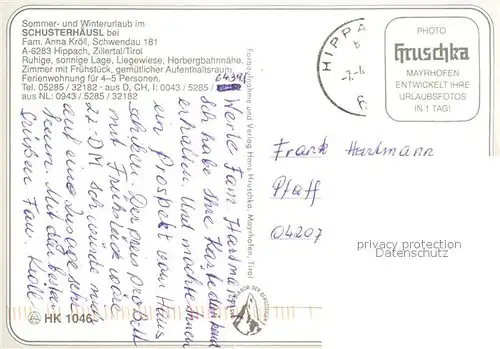 Sommer- und Winterurlaub im
SCHUSTERHÄUSL bei
Fam. Anna Kröll, Schwendau 181
A-6283 Hippach, Zillertal/Tirol
Ruhige, sonnige Lage, Liegewiese, Horbergbahnnähe.
Zimmer mit Frühstück, gemütlicher Aufenthaltsraum,
Ferienwohnung für 4–5 Personen.
Tel. 05285 / 32182 - aus D, CH, I: 0043 / 5285 /
aus NL: 0943 / 5285 / 32182
64326
HIPPA
PHOTO
Hruschka
MAYRHOFEN
ENTWICKELT IHRE
URLAUBSFOTOS
IN 1 TAG!
Frank Hartmann
Pfaff
04207
privacy protection
Datenschutz
Werte Fam Hartmann
Ich habe Ihre Karte dankend
erhalten. Und möchte Ihnen
ein Prospekt vom Haus
schicken. Der Preis pro Bett
mit Frühstück wäre
22.- DM Ich würde mich
auf eine Zusage sehr
freuen. Mit den besten
Grüßen Fam. Kröll
Verlag Hans Hruschka, Mayrhofen, Tirol
HK 1046